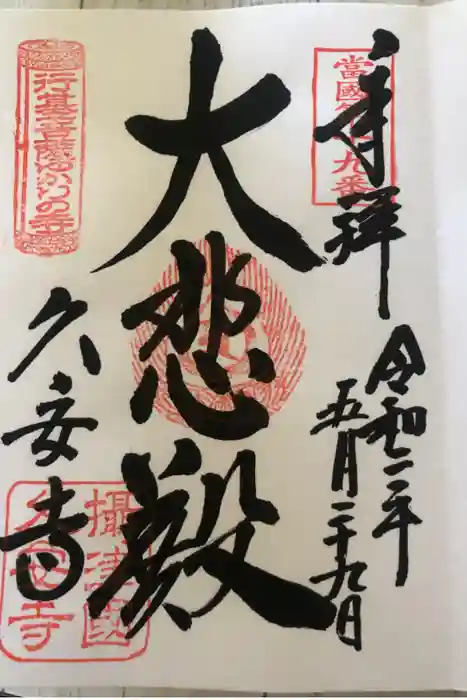 奉拝
當國第十九番
令和二年
五月二十九日
大悲殿
行基菩薩ゆかりの寺
久安寺
攝津國
久安寺